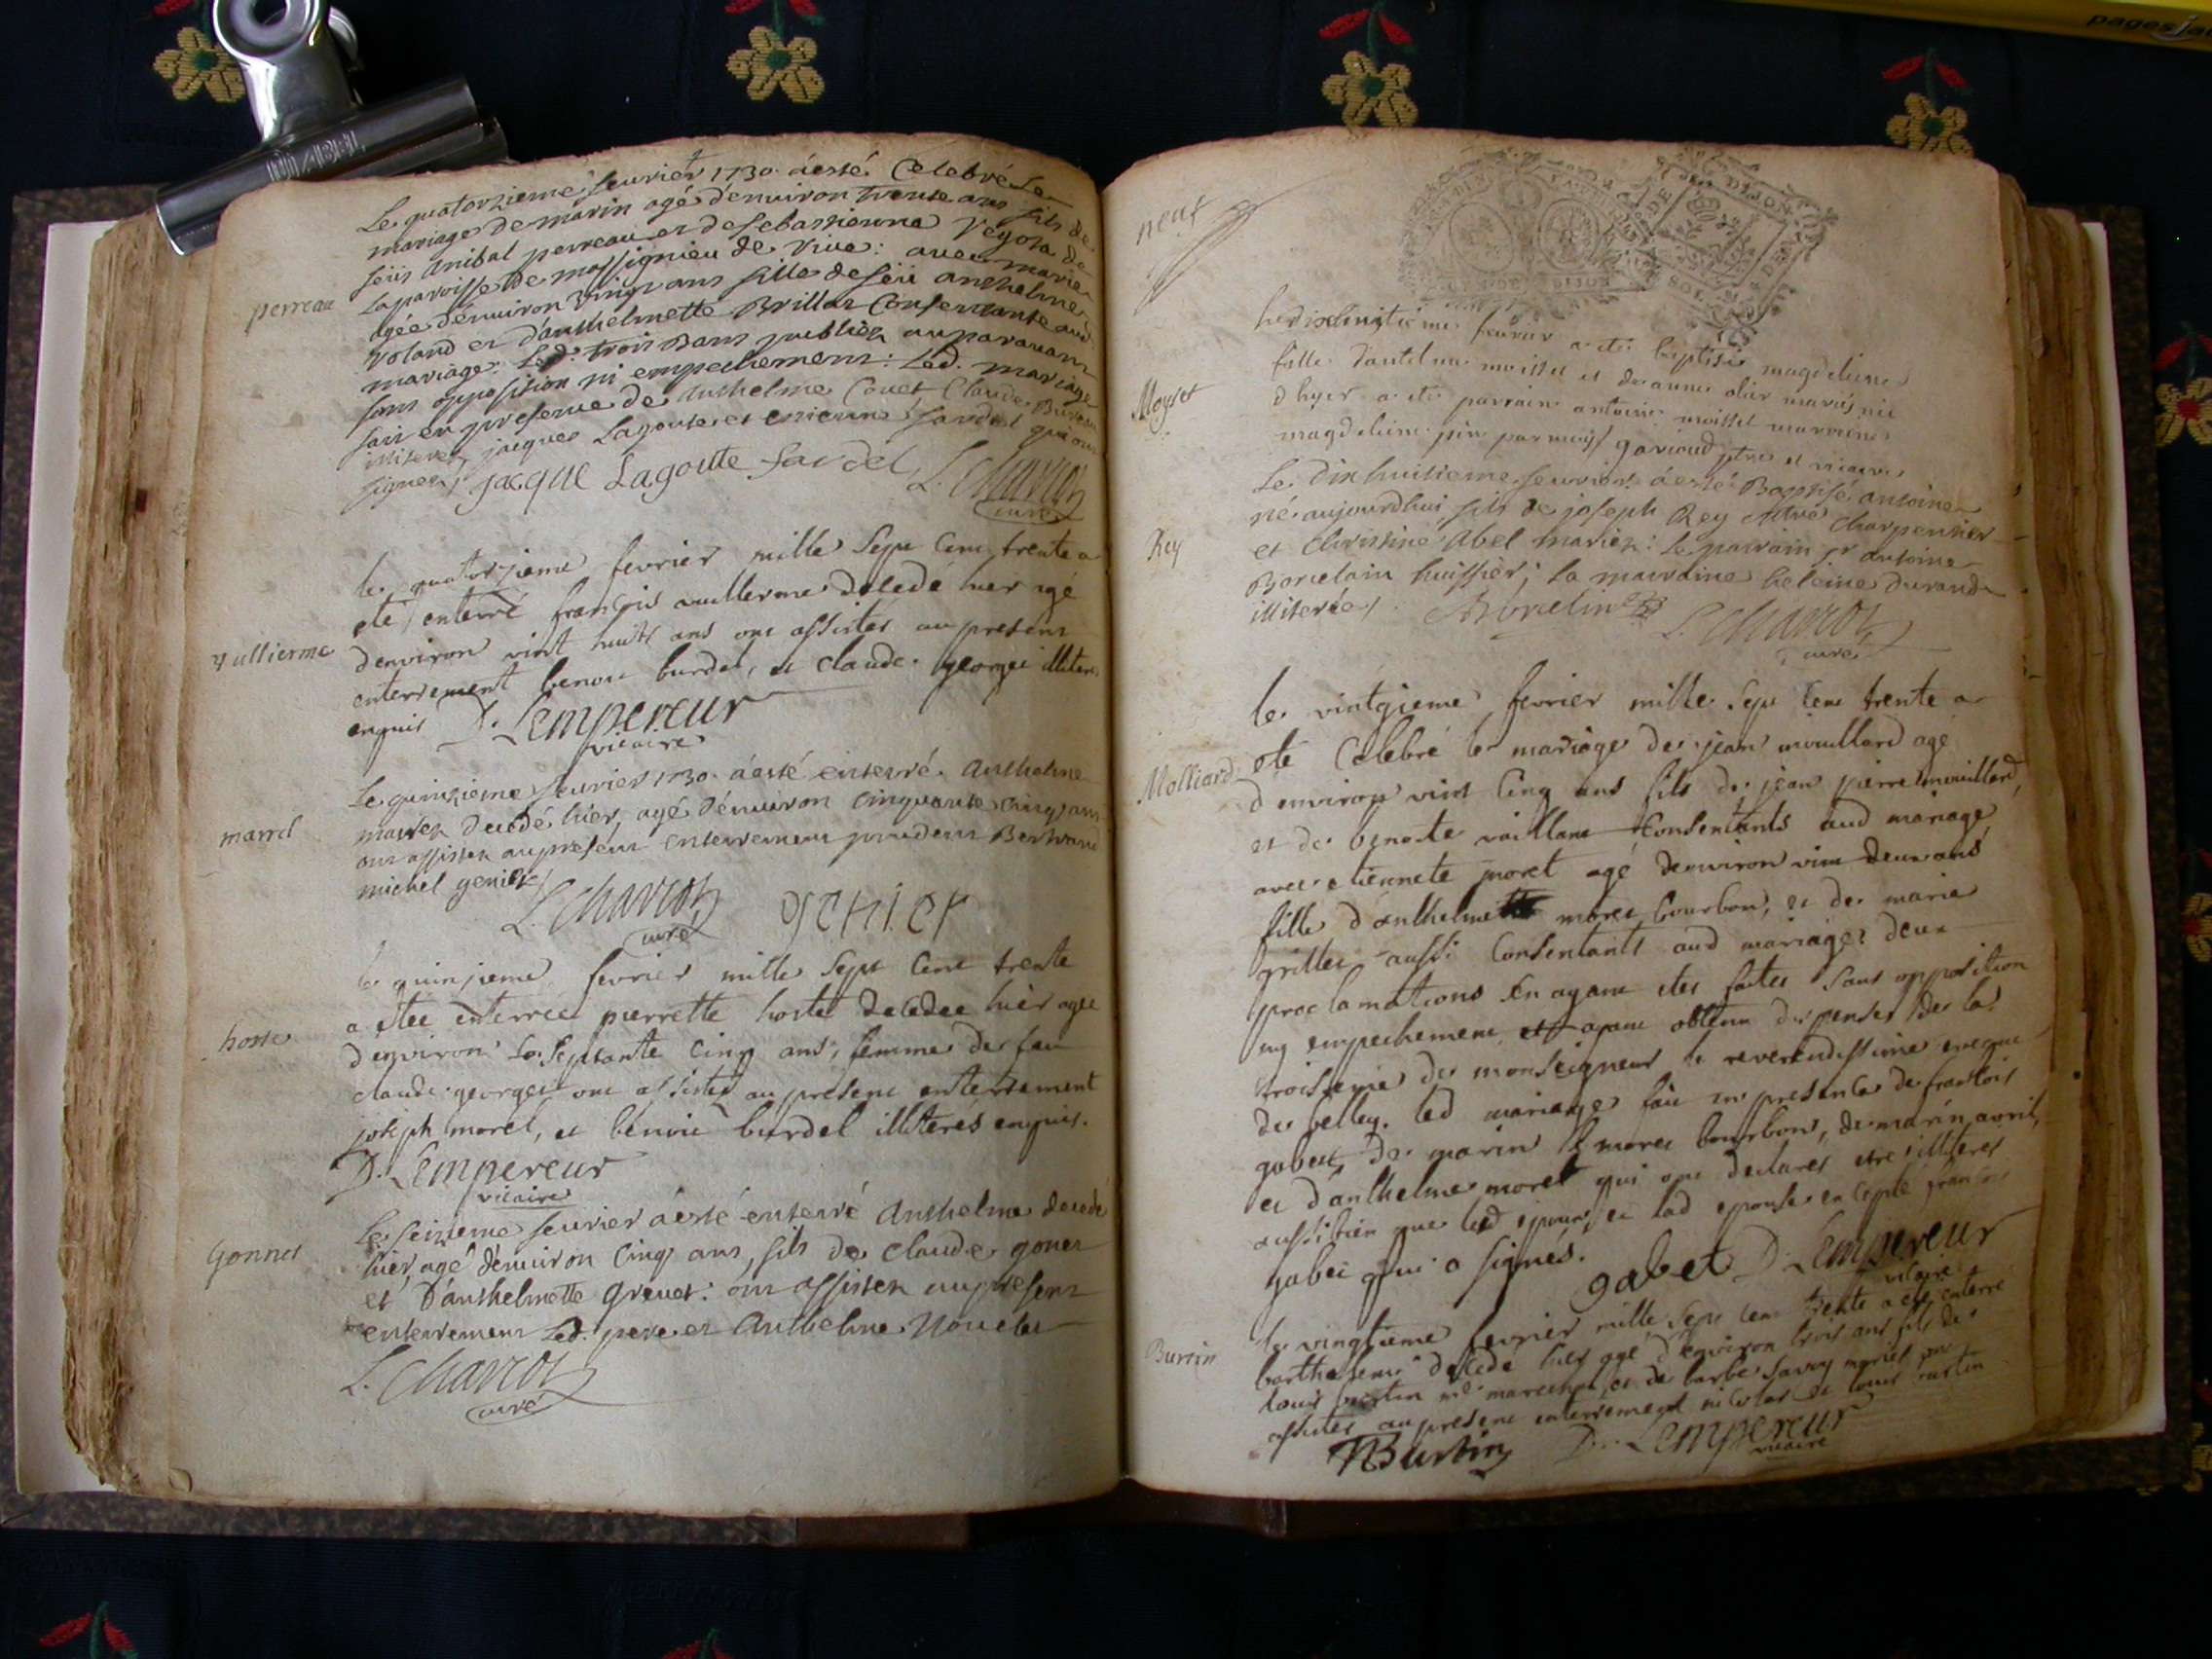 Le quatorzieme feurier 1730. a esté Celebré Le
mariage de marin agé d'enuiron trente ans fils de
feüs anibal perreau et de Sebastienne
La paroisse de massignieu de Riue: auec marie
agée d'enuiron vingt ans fille de feü anthelme
Voland et d'anthelmette Brillat Consentante aud.
mariage: Led. trois Bans publiez auparauant
sans opposition ni empechement: Led. mariage
fait en presence de Anthelme Couet Claude
illiterez, jacques Lagoute et etienne sardel qui ont
signez,
jacque Lagoutte sardel L. Charcot
curé
perreau
le quatorzieme fevrier mille sept cent trente a
eté enterré françois vuillerme decedé hier agé
denviron vint huits ans ont assistés au present
enterrement benoit burdel, et claude george illiteres
enquis D. Lempereur
vicaire
vullierme
Le quinzieme feurier 1730. a esté enterré. Anthelme
marrel decedé hier, agé d'enuiron Cinquante cinq ans
ont assistez au present enterrement prudent Bertrand
michel genier/
L. Charcot genier
curé
marrel
le quinzieme fevrier mille sept cent trente
a étée enterrée pierrette hoste decedee hier agee
denviron septante cinq ans, femme de feu
claude george ont assistés au present enterrement
joseph morel, et benoit burdel illiterés enquis.
D. Lempereur
vicaire
hoste
Le seizieme feurier a esté enterré Anthelme decedé
hier, agé d'enuiron Cinq ans, fils de Claude gonet
et D'anthelmette Greuet: ont assistez au present
enterrement Led. pere et Anthelme
L. Charcot
curé
Gonnet
neuf
le dixhuitieme fevrier a eté baptisée magdeleine
fille d'antelme moisset et de anne olier mariés née
d hyer a eté parrain antoine moisset marraine
magdeleine pin par moy garioud ptre et vicaire
Moyset
Le Dix huitieme feurier a esté Baptisé antoine
né aujourdhui, fils de joseph Rey Me charpentier
et Christine Abel mariez: Le parrain sr antoine
Borcelain huissier; La marraine heleine Durand
illiterée/
L. Charcot
curé
Rey
le vintgieme fevrier mille sept cent trente a
eté Celebré le mariage de jean mouillard agé
d environ vint cinq ans fils de jean pierre mouillard,
et de benoite vaillant Consentants aud mariage
avec etiennete moret agé denviron vint deux ans
fille d'anthelme moret bourbon, et de marie
grillet aussi Consentants aud mariage deux
proclamations en ayant etes faites sans opposition
ny empechement et ayant obtenu dispense de la
troisieme de monseigneur le reverendissime eveque
de belley. led mariage fait en presence de francois
gabet, de marin moret bourbon, de marin avril,
et d'anthelme moret qui ont declares etre illiteres
aussi bien que led epoux, et lad epouse excepté francois
gabet qui a signés.
gabet D. Lempereur
vicaire
Molliard
le vingtieme fevrier mille sept cent trente a eté enterré
barthelemi decedé hier agé d'environ trois ans fils de
louis burtin me marechal, et de barbe savey mariés ont
assistés au present enterrement nicolas et louis burtin
Burtin D. Lempereur
vicaire
Burtin